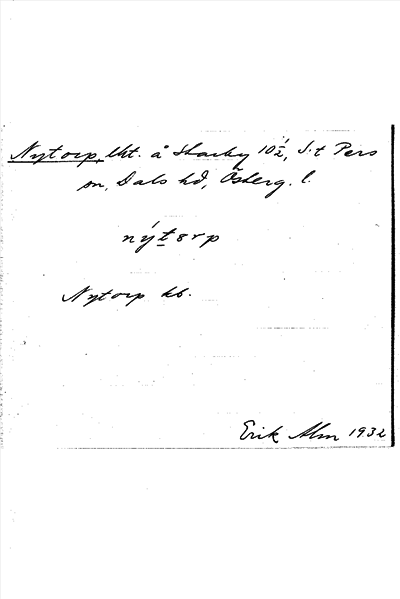 Nytorp, lht. å Skarby 10½, S:t Pers
sn, Dals hd, Österg. l.
nýtørp
Nytorp kb.
Erik Alm 1932